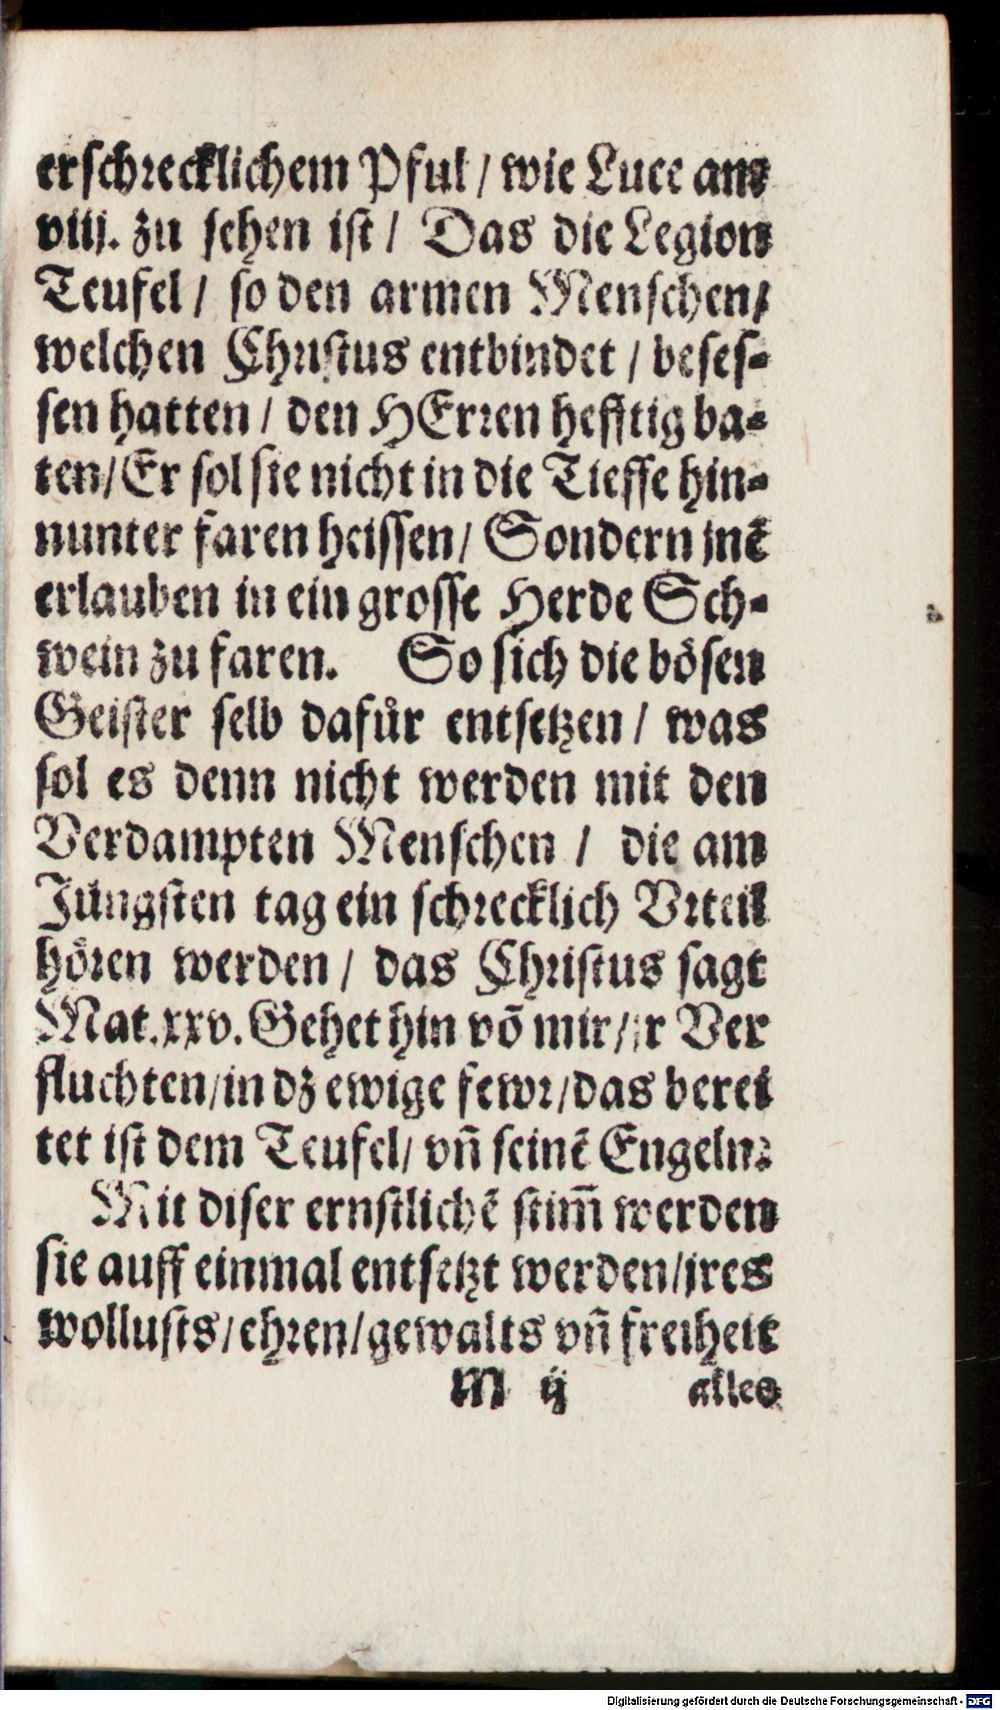 erschrecklichem Pful / wie Luce am
viij. zu sehen ist / Das die Legion
Teufel / so den armen Menschen/
welchen Christus entbindet / beses-
sen hatten / den HErren hefftig ba-
ten/Er sol sie nicht in die Tieffe hin-
nunter faren heissen/ Sondern jnē
erlauben in ein grosse Herde Sch-
wein zu faren. So sich die bösen
Geister selb dafür entsetzen / was
sol es denn nicht werden mit den
Verdampten Menschen / die am
Jüngsten tag ein schrecklich Vrteil
hören werden / das Christus sagt
Mat.xxv. Gehet hin vō mir/jr Ver
fluchten/in dz ewige fewr/das berei
tet ist dem Teufel/ vñ seinē Engeln:
Mit diser ernstlichē stim̄ werden
sie auff einmal entsetzt werden/jres
wollusts/ehren/gewalts vñ freiheit
M ij alles
Digitalisierung gefördert durch die Deutsche Forschungsgemeinschaft - DFG